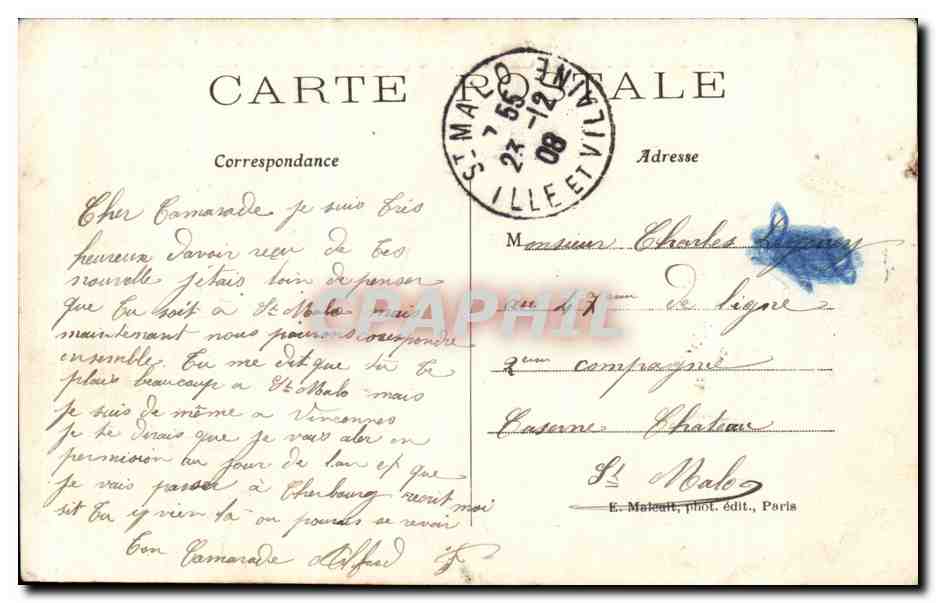 CARTE POSTALE
ST MALO
7 55
23 -12
08
ILLE ET VILAINE
Correspondance
Adresse
Cher Camarade je suis très
heureux davoir reçu de tes
nouvelle jétais loin de penser
que tu soit à St Malo mais
maintenant nous pourons corespondre
ensemble. Tu me dit que tu te
plais beaucoup a St Malo mais
je suis de même a Vincennes
je te dirais que je vais aler en
permission au jour de lan et que
je vais passer à Cherbourg recrit moi
sit tu y vien la on pouras se revoir
Ton Camarade Alfred
Monsieur Charles
au 47eme de ligne
2eme compagnie
Caserne Chateau
St Malo
E. Malcuit, phot. édit., Paris
CPAPHIL